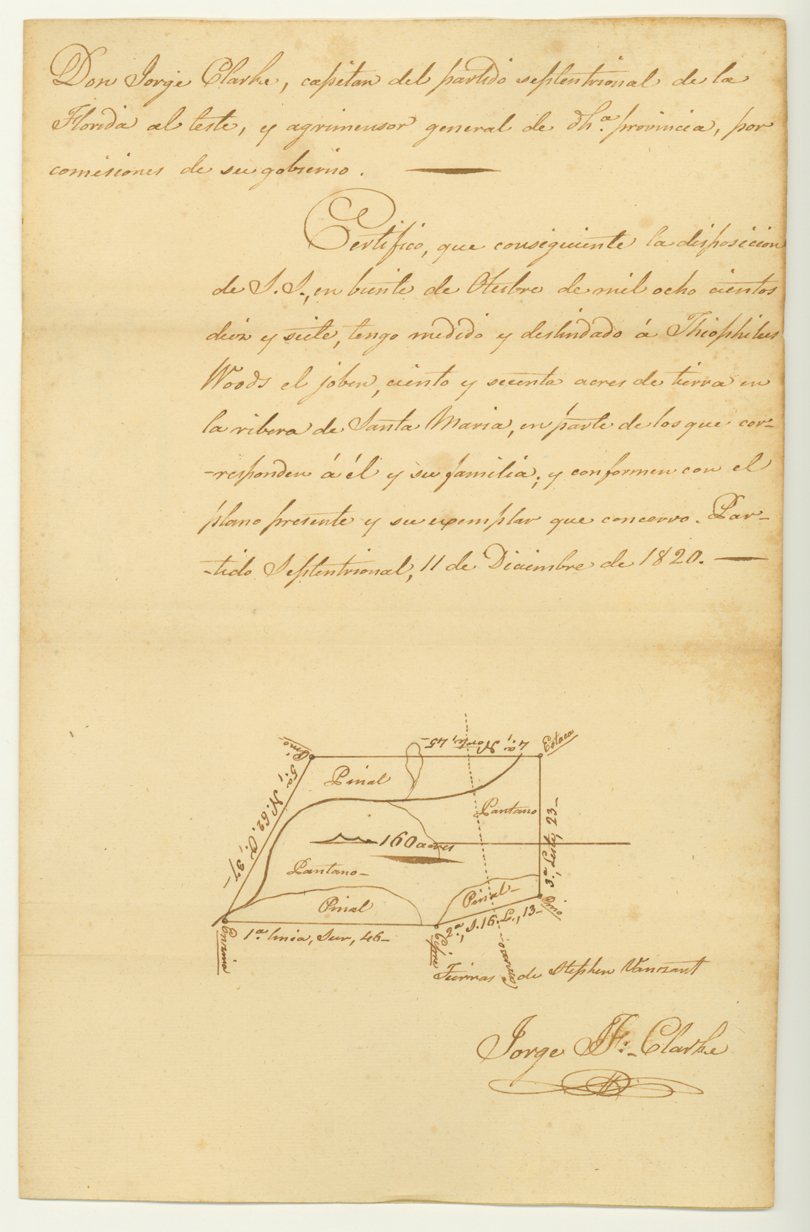 Don Jorge Clarke, capitan del partido septentrional de la
Florida al leste, y agrimensor general de dhª. provincia, por
comisiones de su gobierno.
Certifico, que consiguiente la disposicion
de S.S., en biente de Otubre de mil ocho cientos
diez y siete, tengo medido y deslindado á Theophilus
Woods el joben, ciento y secenta acres de tierra en
la ribera de Santa Maria, en parte de los que cor-
-responden á él y su familia; y conformen con el
plano presente y su exemplar que conservo. Par-
-tido Septentrional, 11 de Diciembre de 1820.
Pino
4ª, Norte, 45-
Estaca
Pinal
Pantano
5ª, N. 62. O., 37-
160 acres
3ª, Leste, 23-
Pantano-
Pinal-
Pinal
Pino
1ª. linia, Sur, 46-
2ª, S. 16. L., 13-
Encino
Cipres
Camino
Tierras de Stephen Vanzant
Jorge J. F. Clarke